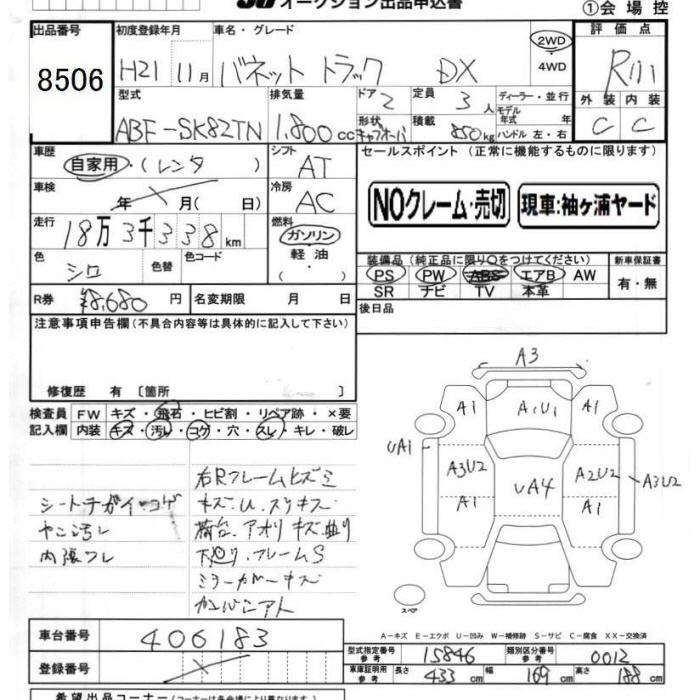 オークション出品申込書
①会場控
出品番号 初度登録年月 車名・グレード 評価点
8506 H21 11月 バネット トラック DX 2WD 4WD
型式 排気量 ドア 2 定員 3人 ディーラー・並行 外装 内装
ABF-SK82TN 1,800cc 形状 積載 850kg モデル年式 年 ハンドル 左・右 C C
車歴 シフト セールスポイント (正常に機能するものに限ります)
自家用・(レンタ) AT
車検 年 月( 日) 冷房 AC
NOクレーム・売切 現車:袖ヶ浦ヤード
走行 18万3千338km 燃料 ガソリン 軽油
色 シロ 色替 色コード
装備品 (純正品に限り○をつけてください) 新車保証書
PS PW ABS エアB AW 有・無
SR ナビ TV 本革
R券 ¥8,680円 名変期限 月 日
後日品
注意事項申告欄(不具合内容等は具体的に記入して下さい)
修復歴 有 〔箇所 〕
検査員 FW キズ・飛石・ヒビ割・リペア跡・×要
記入欄 内装 キズ・汚レ・コゲ・穴・スレ・キレ・破レ
右Rフレームヒズミ
シートチガイ・コゲ キズ.U.スリキズ
ヤニ汚レ 荷台.アオリキズ曲り
内張フレ 下廻り.フレームS
ミラーカバーキズ
A3
A1 A1U1 A1
UA1 A3U2 UA4 A2U2 A3U2
A1 A1
スペア
A-キズ E-エクボ U-凹み W-補修跡 S-サビ C-腐食 XX-交換済
車台番号 406183
登録番号
型式指定番号 参考 15846 類別区分番号 参考 0012
車庫証明用 参考 長さ 433cm 幅 169cm 高さ 188cm
希望出品コーナー